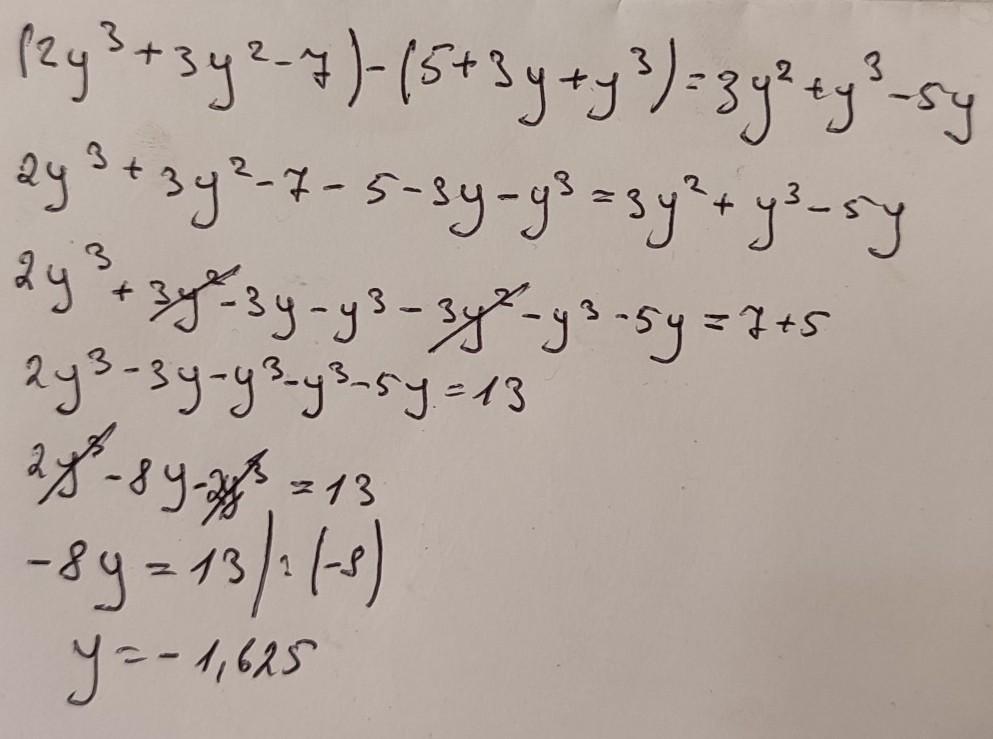 (2y³+3y²-7)-(5+3y+y³)=3y²+y³-5y
2y³+3y²-7-5-3y-y³=3y²+y³-5y
2y³+3y²-3y-y³-3y²-y³-5y=7+5
2y³-3y-y³-y³-5y=13
2y³-8y-2y³=13
-8y=13/:(-8)
y=-1,625